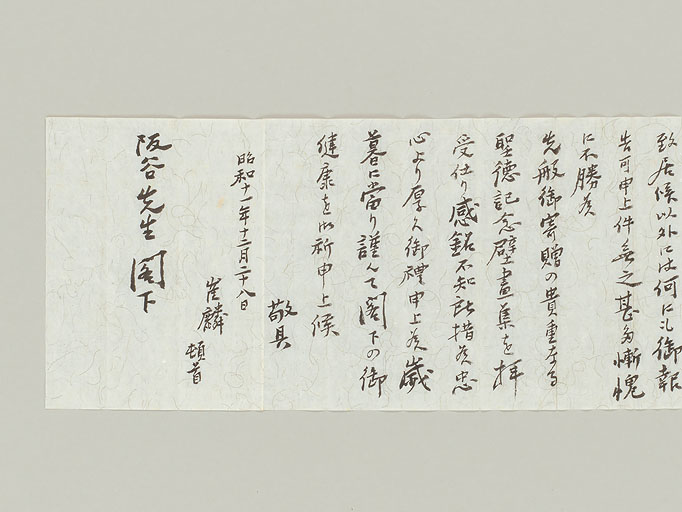 致居候以外には何にも御報
告可申上件無之甚多慚愧
に不勝候
先般御寄贈の貴重なる
聖徳記念壁畫集を拝
受仕り感銘不知所措候忠
心より厚く御禮申上候歳
暮に當り謹んで閣下の御
健康を御祈申上候
敬具
昭和十一年十二月二十八日
崔麟 頓首
阪谷先生閣下